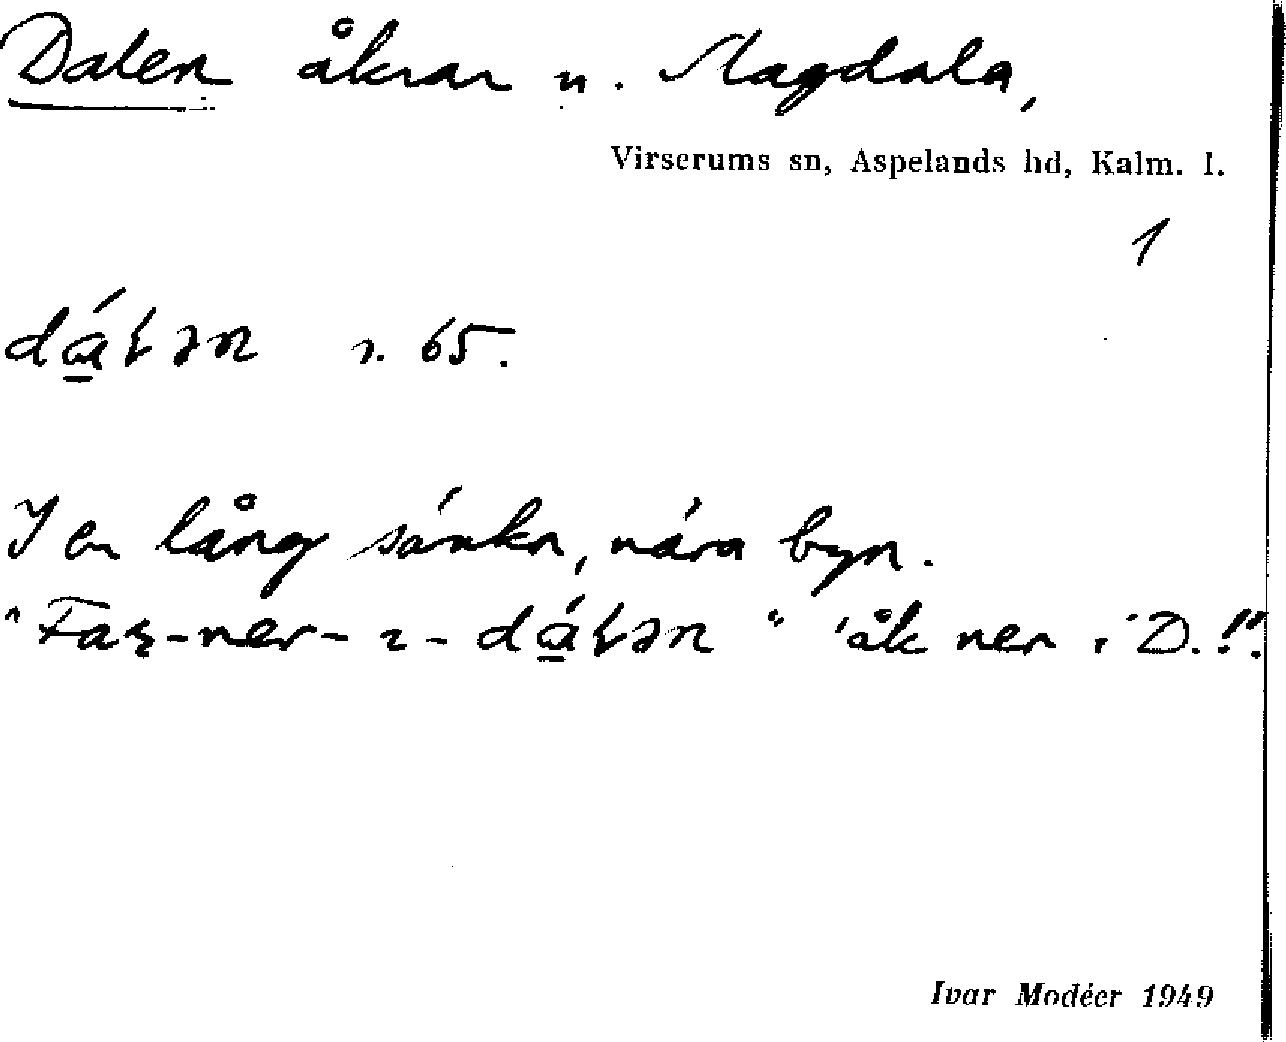 Dalen åkrar u. Magdala,
Virserums sn, Aspelands hd, Kalm. l.
1
dá̱ɫən s. 65.
I en lång sänka, nära byn.
"Far-ner-i-dá̱ɫən" 'åk ner i D.!'.
Ivar Modéer 1949